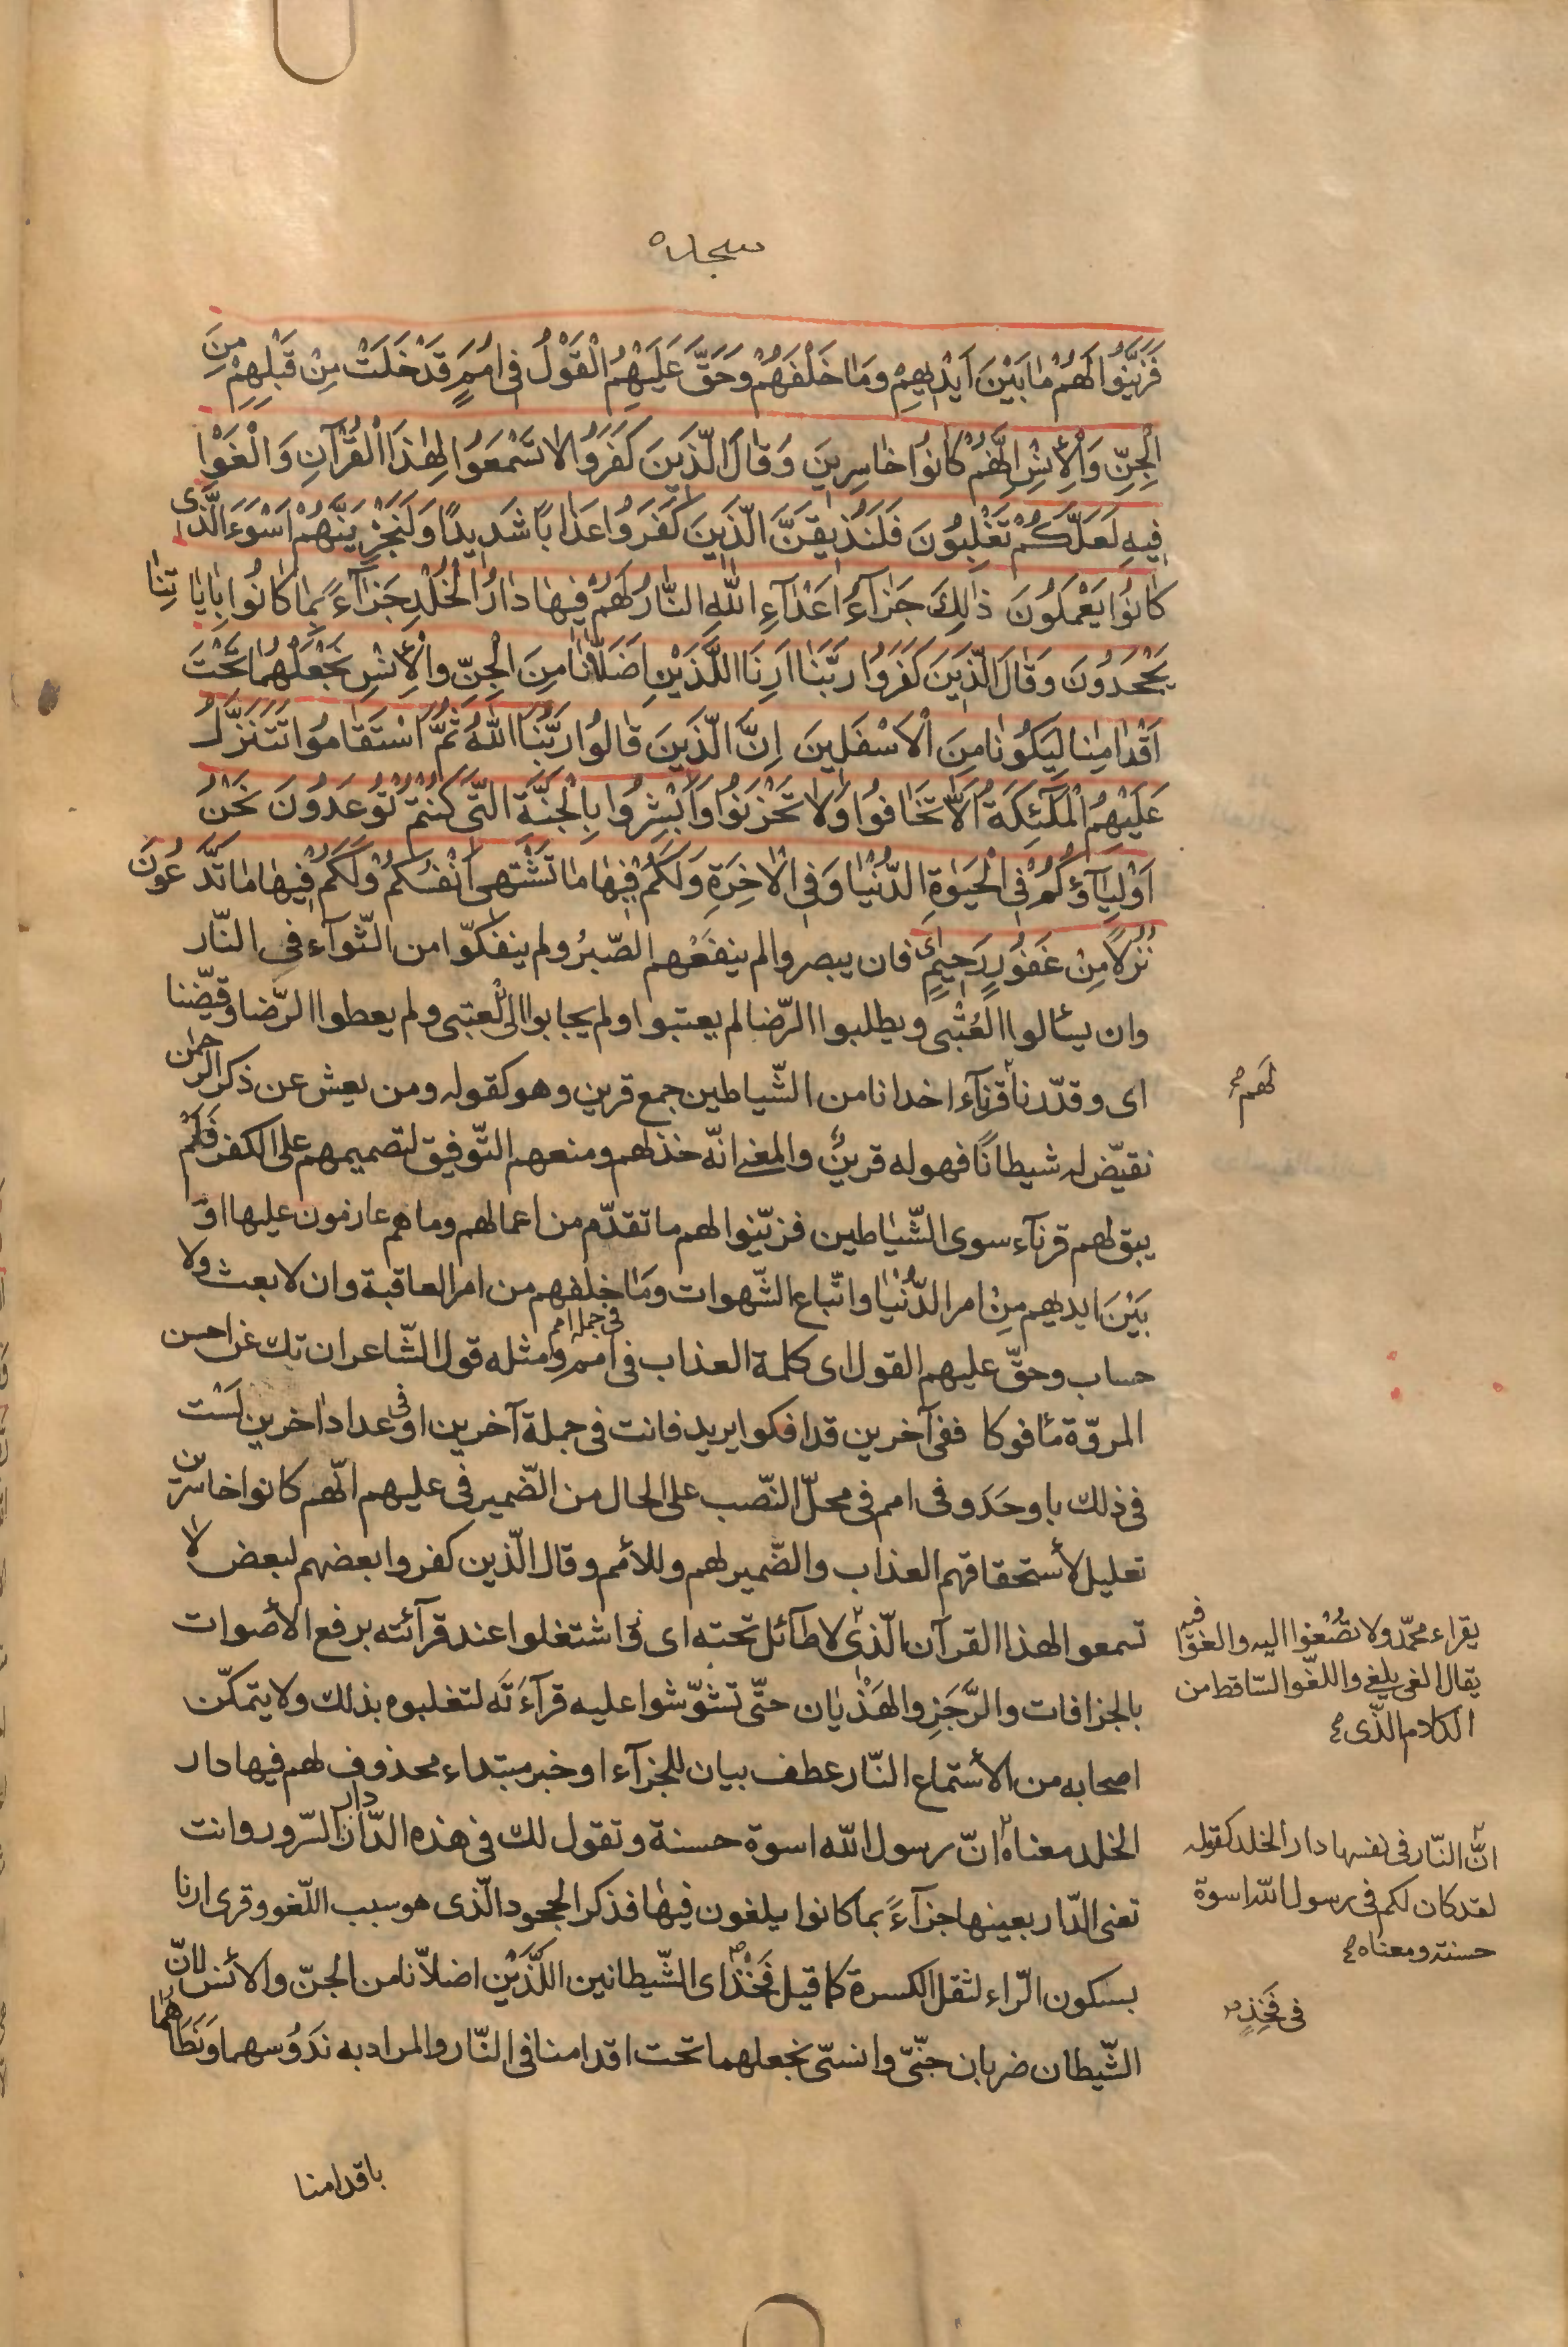 سجده
فَزَيَّنُوا لَهُمْ مٰا بَيْنَ اَيْدٖيهِمْ وَمٰا خَلْفَهُمْ وَحَقَّ عَلَيْهِمُ الْقَوْلُ فٖى اُمَمٍ قَدْ خَلَتْ مِنْ قَبْلِهِمْ مِنَ
الْجِنِّ وَالْاِنْسِ اِنَّهُمْ كٰانُوا خٰاسِرٖينَ وَقٰالَ الَّذٖينَ كَفَرُوا لٰا تَسْمَعُوا لِهٰذَا الْقُرْآنِ وَالْغَوْا
فٖيهِ لَعَلَّكُمْ تَغْلِبُونَ فَلَنُذٖيقَنَّ الَّذٖينَ كَفَرُوا عَذٰابًا شَدٖيدًا وَلَنَجْزِيَنَّهُمْ اَسْوَءَ الَّذٖى
كٰانُوا يَعْمَلُونَ ذٰلِكَ جَزٰآءُ اَعْدٰآءِ اللّٰهِ النّٰارُ لَهُمْ فٖيهٰا دٰارُ الْخُلْدِ جَزٰآءً بِمٰا كٰانُوا بِاٰيٰاتِنٰا
يَجْحَدُونَ وَقٰالَ الَّذٖينَ كَفَرُوا رَبَّنٰا اَرِنَا اللَّذَيْنِ اَضَلّٰانٰا مِنَ الْجِنِّ وَالْاِنْسِ نَجْعَلْهُمٰا تَحْتَ
اَقْدٰامِنٰا لِيَكُونٰا مِنَ الْاَسْفَلٖينَ اِنَّ الَّذٖينَ قٰالُوا رَبُّنَا اللّٰهُ ثُمَّ اسْتَقٰامُوا تَتَنَزَّلُ
عَلَيْهِمُ الْمَلٰٓئِكَةُ اَلّٰا تَخٰافُوا وَلٰا تَحْزَنُوا وَاَبْشِرُوا بِالْجَنَّةِ الَّتٖى كُنْتُمْ تُوعَدُونَ نَحْنُ
اَوْلِيٰآؤُكُمْ فِى الْحَيٰوةِ الدُّنْيٰا وَفِى الْاٰخِرَةِ وَلَكُمْ فٖيهٰا مٰا تَشْتَهٖى اَنْفُسُكُمْ وَلَكُمْ فٖيهٰا مٰا تَدَّعُونَ
نُزُلًا مِنْ غَفُورٍ رَحٖيمٍ فان يبصروا لم ينفَعْهم الصّبرُ ولم ينفكّوا من الثّوآء فى النّار
وان يسألوا العُتْبى ويطلبوا الرّضا لم يعتبوا ولم يجابوا الى العتبى ولم يعطوا الرّضا وقيّضنا
اى وقدّرنا قرنآء اخدانا من الشّياطين جمع قرين وهو كقوله ومن يعش عن ذكر الرحمٰن
لهم صح
نقيّض له شيطانًا فهو له قرينٌ والمعنى انّه خذلهم ومنعهم التّوفيق لتصميمهم على الكفر فَلَمْ
يبق لهم قرنآء سوى الشّياطين فزيّنوا لهم ما تقدّم من اعمالهم وما هم عازمون عليها او
بَيْنَ ايديهم مِنْ امر الدُّنْيٰا واتّباع الشّهوات ومٰا خلفهم من امر العاقبة وان لا بعث ولا
حساب وحقّ عليهم القول اى كلمة العذاب فى امم فى جمله امم ومثله قول الشّاعر ان تك عن احسن
المروّة مأفوكا ففى آخرين قد افكوا يريد فانت فى جملة آخرين او فى عداد اخرين لَسْت
فى ذلك باوحَد وفى امم فى محلّ النّصب على الحال من الضّمير فى عليهم انّهم كانوا خاسرين
تعليل لأستحقاقهم العذاب والضّمير لهم وللأمم وقال الّذين كفروا بعضهم لبعض لا
تسمعوا لهذا القرآن الّذى لا طآئل تحته اى فى اشتغلوا عند قرآئته برفع الأصوات
يقراء محمّد ولا تصْغوا اليه والغوْا فيه
يقال الغى يلغى واللغو السّاقط من
الكلام الّذى صح
بالخرافات والرَّجَزِ والهَذْيٰان حتّى تشوّشوا عليه قرآءَتَه لتغلبوه بذلك ولا يتمكّن
اصحابه من الأستماع النّار عطف بيان للجزآء او خبر مبتداء محذوف لهم فيها دار
الخلد معناه انّ رسول الله اسوة حسنة وتقول لك فى هذه الدّار دار السّرور وانت
انّ النّار فى نفسها دار الخلد كقوله
لقد كان لكم فى رسول الله اسوة
حسنة ومعناه صح
تعنى الدّار بعينها جزآءً بما كانوا يلغون فيها فذكر الجحود الّذى هو سبب اللّغو وقرى ارنا
بسكون الرّاء لثقل الكسرة كما قيل فَخْذ اى الشّيطانين اللَّذَيْن اضلاّنا من الجنّ والأنس لانّ
فى فَخِذٍ صح
الشّيطان ضربان جنّىّ وانسىّ نجعلهما تحت اقدامنا فى النّار والمراد به ندَوُسهما ونَطَأهما
باقدامنا